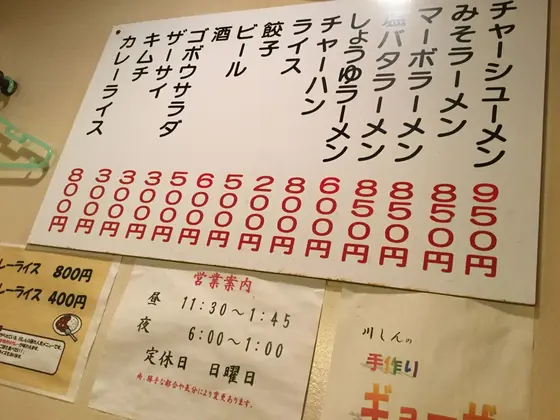 チャーシューメン 950円
みそラーメン 850円
マーボラーメン 850円
塩バタラーメン 850円
しょうゆラーメン 600円
チャーハン 800円
ライス 200円
餃子 500円
ビール 600円
酒 500円
ゴボウサラダ 300円
ザーサイ 300円
キムチ 300円
カレーライス 800円
レーライス 800円
レーライス 400円
営業案内
昼 11:30～1:45
夜 6:00～1:00
定休日 日曜日
尚、勝手な都合や気分により変更あります。
川しんの
手作り
ギョーザ